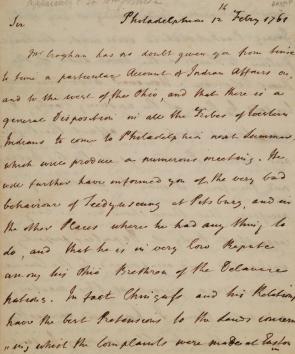 Sir Philadelphia 12th Febry 1761
Mr Croghan has no doubt given you from time
to time a particular Account of Indian Affairs on,
and to the west of, the Ohio, and that there is a
general Disposition in all the Tribes of Western
Indians to come to Philadelphia next Summer
which will produce a numerous meeting. He
will further have informed you of the very bad
behaviour of Teedyuscung at Pitsburg, and in
the other Places where he had any thing to
do, and that he is in very low Repute
among his Ohio Brethren of the Delaware
Nations. In fact and his Relations
have the best Pretensions to the Lands concern
ing which the Complaints were made at Easton